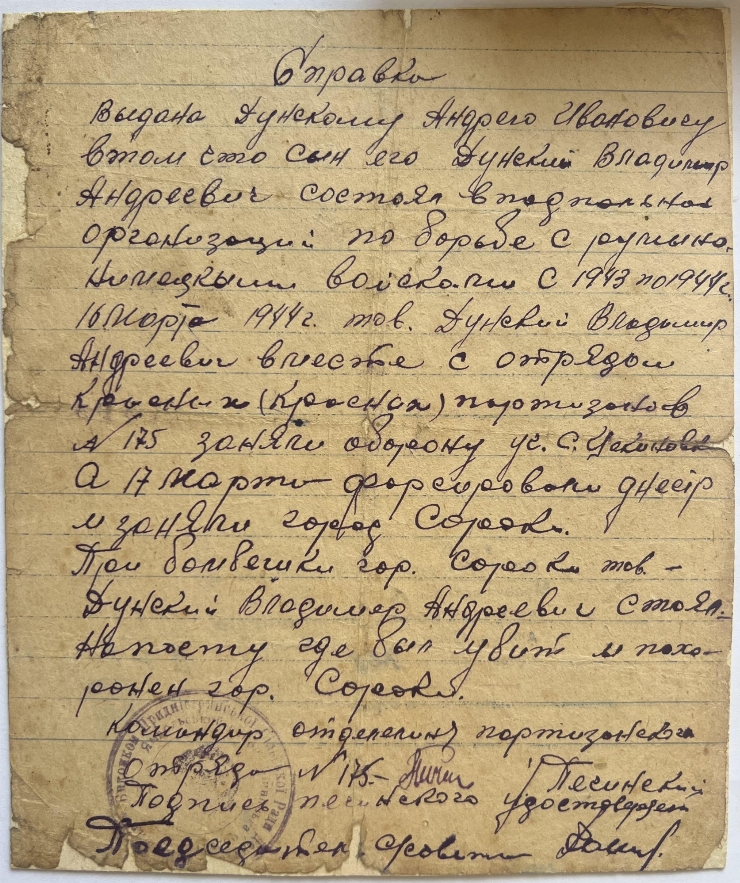 Справка
Выдана Дунскому Андрею Ивановичу
втом что сын его Дунский Владимир
Андреевич состоял вподпольной
организаций по борьбе с румыно-
немецкыми войсками с 1943 по 1944 г.
16 Марта 1944 г. тов. Дунский Владимир
Андреевич вместе с отрядом
(Красных) партизанов
N 175 заняли оборону с. Цекиновк
А 17 Марта форсировали днестр
и заняли город Сороки.
При бомбешки гор. Сороки тов. -
Дунский Владимер Андреевич стоял
Напосту где был убит и похо-
ронен гор. Сороки.
Командир отделения партизанского
Отряда N 175 - Песинский
Подпись песинского удостоверяет
Председатель